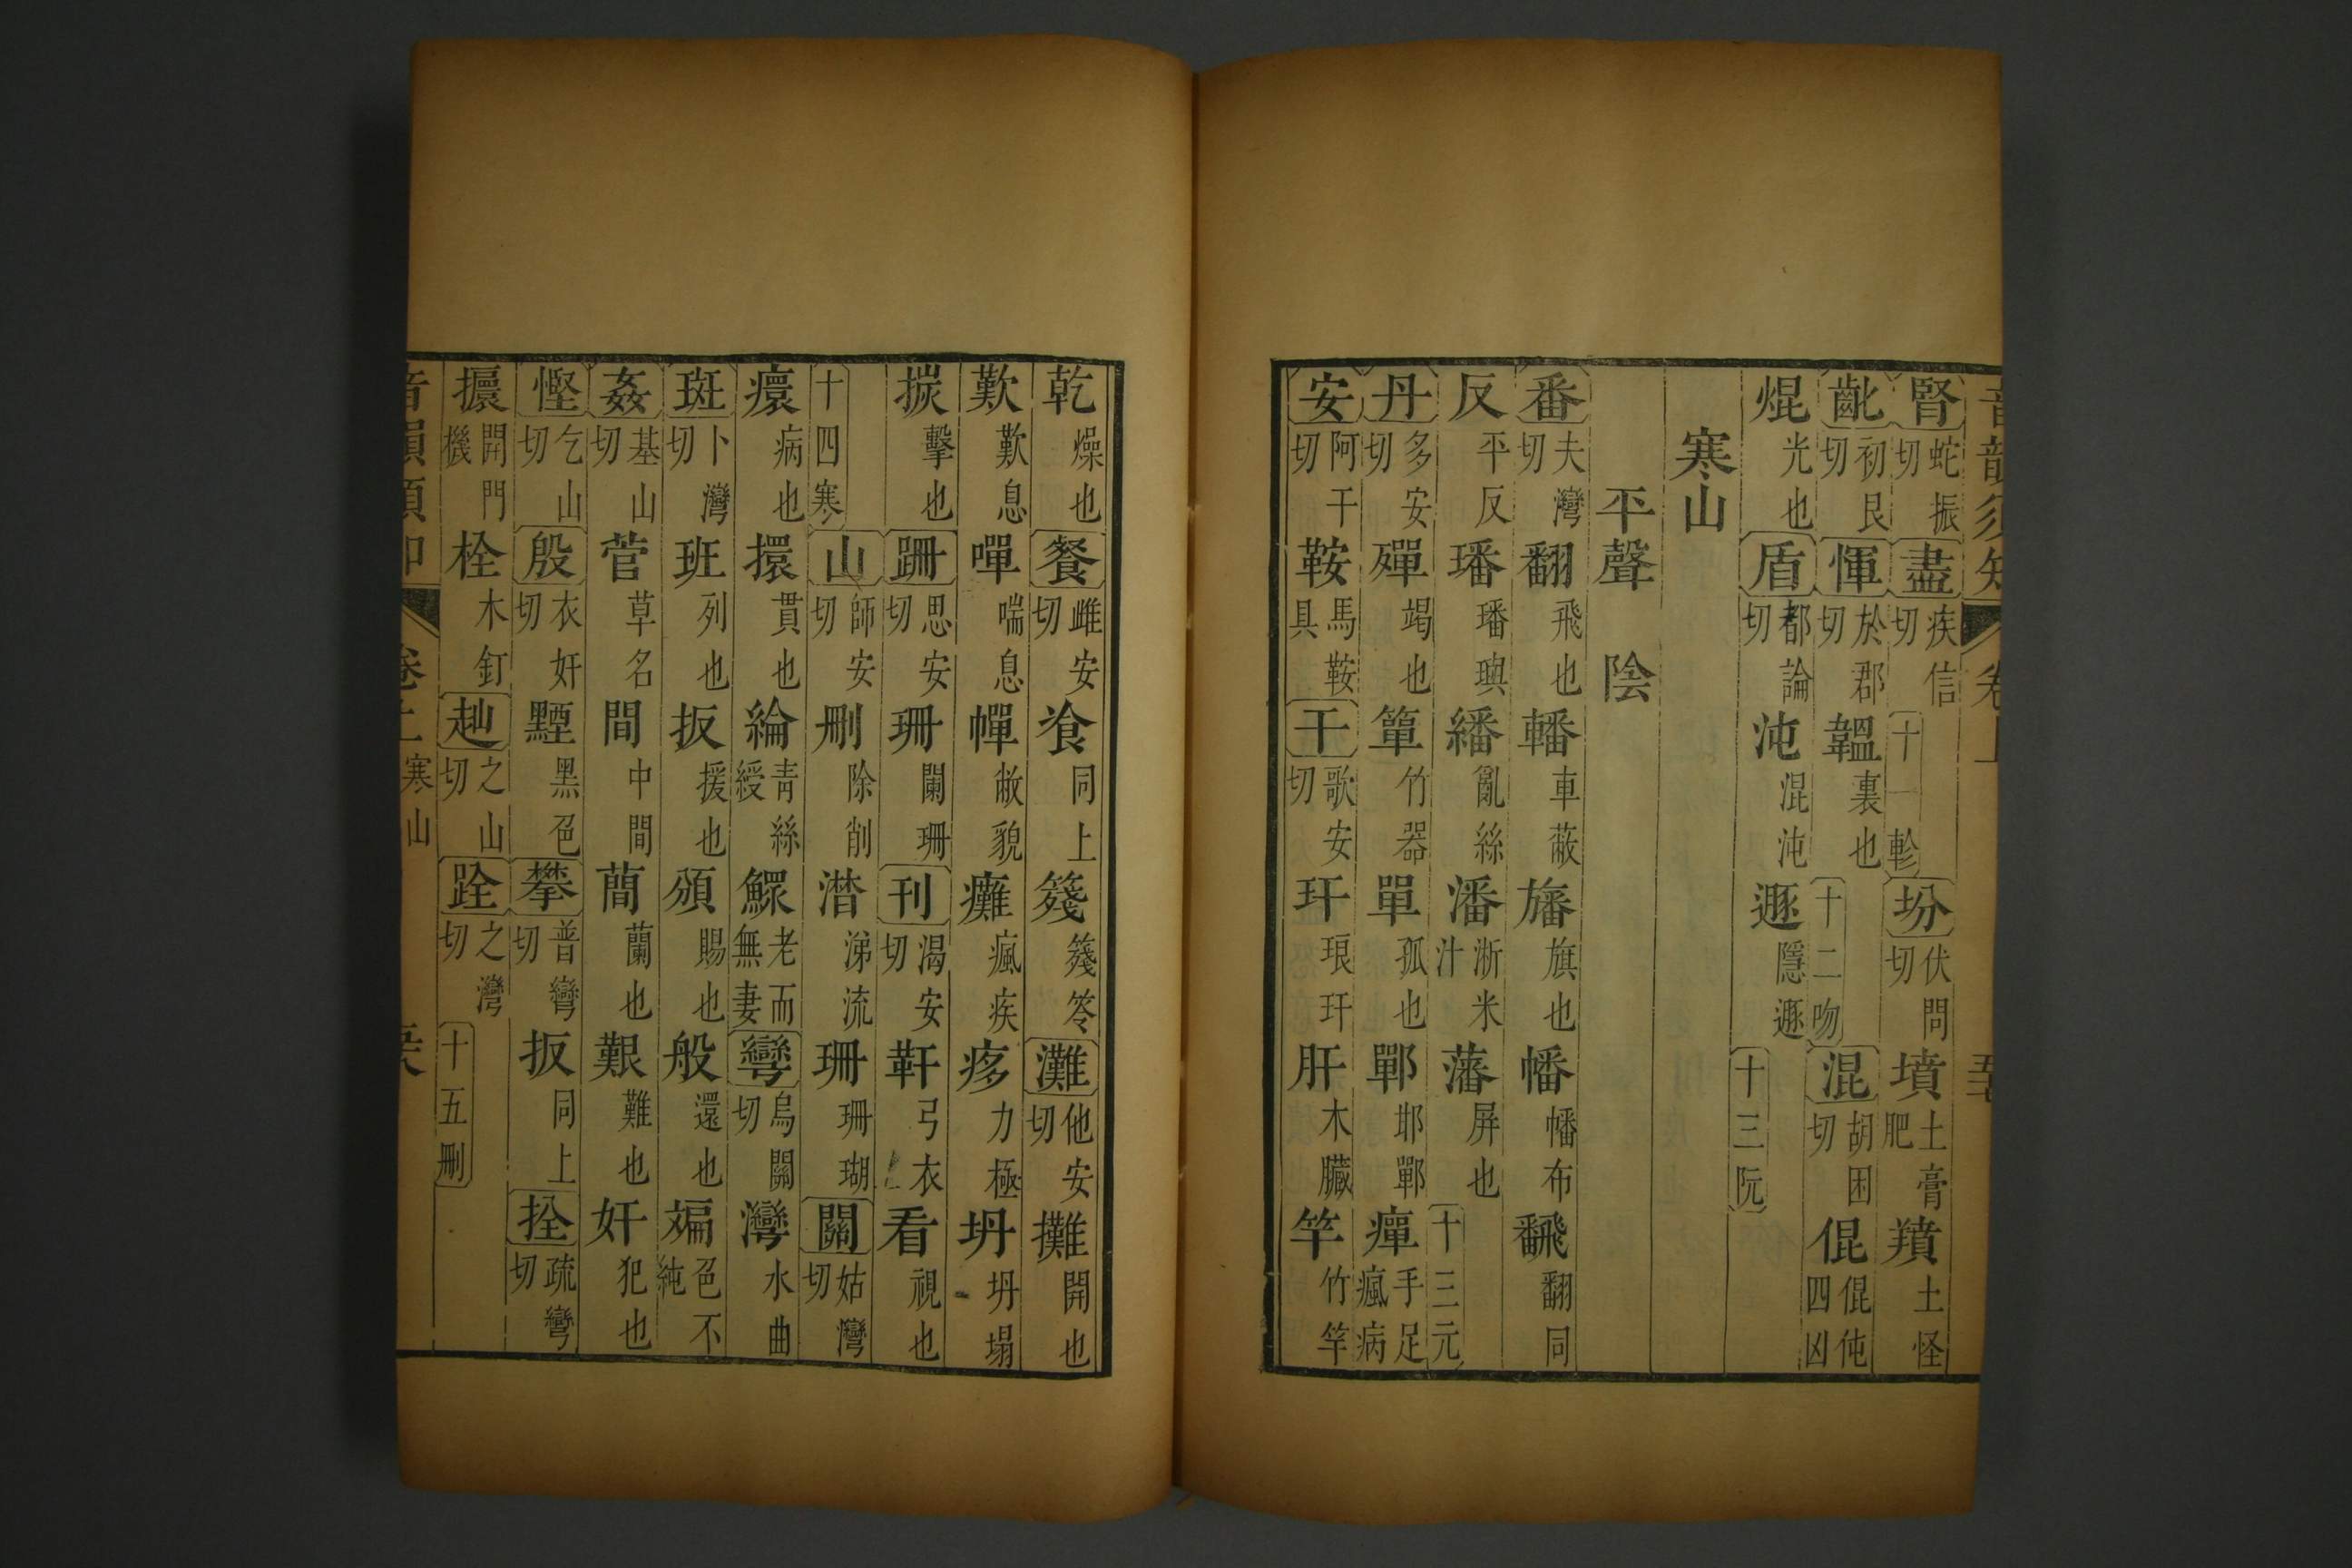 音韻須知 卷上
腎蛇振切盡疾信切十一軫坋伏問切墳土膏肥羵土怪
齔初艮切惲於郡切韞裏也十二吻混胡困切倱倱伅四凶
焜光也盾都論切沌混沌遯隱遯十三阮
寒山
平聲 陰
番夫灣切翻飛也轓車蔽旛旗也幡幡布飜翻同
反平反璠璠璵繙亂絲潘淅米汁藩屏也十三元
丹多安切殫竭也簞竹器單孤也鄲邯鄲癉手足瘋病
安阿干切鞍馬鞍具干歌安切玕琅玕肝木臟竿竹竿
乾燥也餐雌安切飡同上籛籛笭灘他安切攤開也
歎歎息嘽喘息幝敝貌癱瘋疾痑力極坍坍塌
掞擊也跚思安切珊闌珊刊渴安切靬弓衣看視也
十四寒山師安切刪除削潸涕流珊珊瑚關姑灣切
癏病也擐貫也綸青絲綬鰥老而無妻彎烏關切灣水曲
斑卜灣切班列也扳援也頒賜也般還也斒色不純
姦基山切菅草名間中間蕑蘭也艱難也奸犯也
慳乞山切殷衣奸切黫黑色攀普彎切扳同上拴疏彎切
擐開門機栓木釘趉之山切跧之灣切十五刪
音韻須知 卷上 寒山